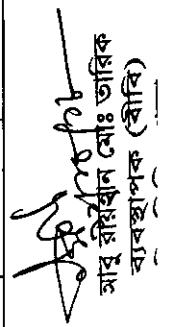 আবু রায়হান মোঃ তারিক
ব্যবস্থাপক (বীবি)